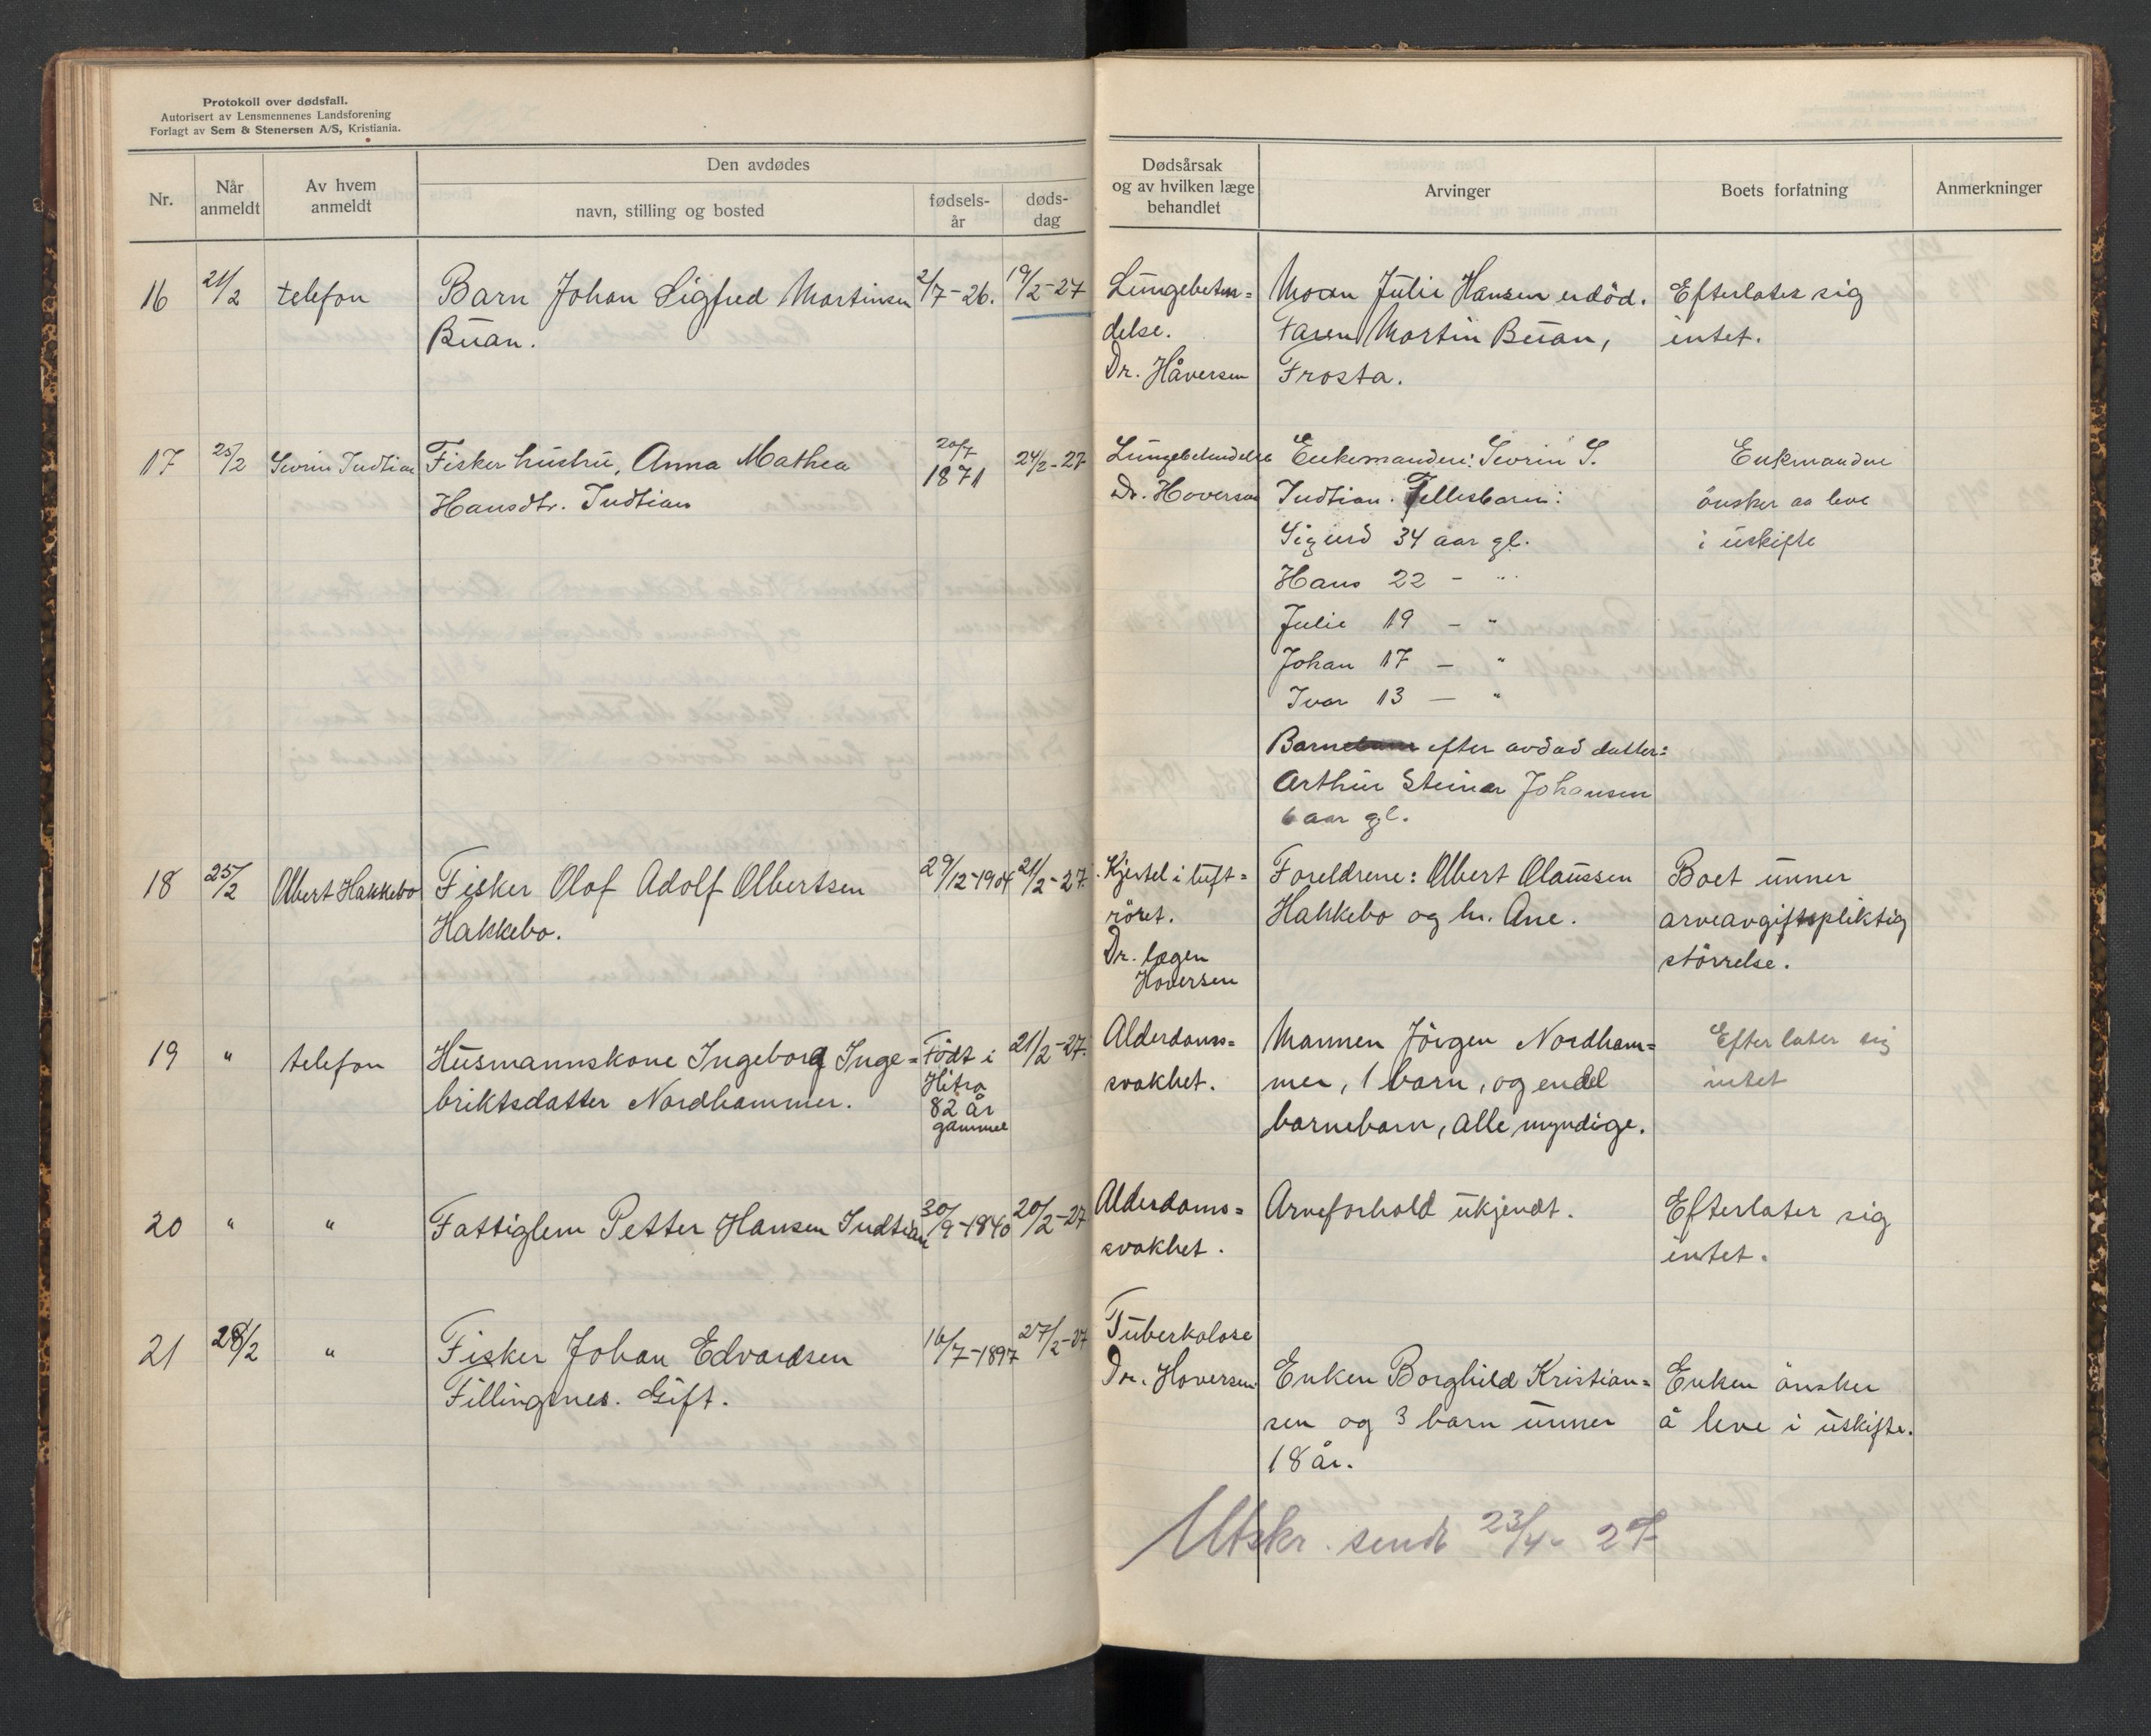 Protokoll over dødsfall.
Autorisert av Lensmennenes Landsforening
Forlagt av Sem & Stenersen A/S, Kristiania.
Nr.
Når anmeldt
Av hvem anmeldt
Den avdødes
navn, stilling og bosted
fødsels-år
døds-dag
Dødsårsak
og av hvilken læge
behandlet
Arvinger
Boets forfatning
Anmerkninger
16 21/2 telefon Barn Johan Sigfred Martinsen 2/7-26. 19/2-27
Buan.
Lungebeten=
delse.
Dr. Håversen
Moren Julie Hansen er död.
Faren Martin Buan,
Frosta.
Efterlater sig
intet.
17 25/2 Sevrin Indtian Fisker hustru, Anna Mathea 20/7 1871 24/2-27
Hansdtr. Indtian
Lungebetendelse
Dr. Hoversen
Enkemanden: Sevrin S.
Indtian. Fellesbarn:
Sigurd 34 aar gl.
Hans 22 - "
Julie 19 - "
Johan 17 - "
Ivar 13 - "
Barn efter avdød datter:
Arthur Steinar Johansen
6 aar gl.
Enkmanden
önsker aa leve
i uskifte
18 25/2 Albert Hakkebo Fisker Olaf Adolf Albertsen 29/12-1904 21/2-27.
Hakkebo.
Kjertel i luft=
röret.
Dr. lægen
Hoversen
Foreldrene: Albert Olaussen
Hakkebo og hu. Ane.
Boet unner
arveavgiftspliktig
störrelse.
19 " telefon Husmannskone Ingeborg Inge=
briktsdatter Nordhammer.
Födt i
Hitra
82 år
gammel
21/2-27.
Alderdoms=
svakhet.
Mannen Jörgen Nordham=
mer, 1 barn, og endel
barnebarn, alle myndige.
Efterlater sig
intet
20 " " Fattiglem Petter Hansen Indtian 30/9-1840 20/2-27
Alderdoms=
svakhet.
Arveforhold ukjendt.
Efterlater sig
intet.
21 28/2 " Fisker Johan Edvardsen 16/7-1897 27/2-27
Fillingsnes. Gift.
Tuberkolose
Dr. Hoversen
Enken Borghild Kristian=
sen og 3 barn unner
18 år.
Enken önsker
å leve i uskifte.
Utskr. sendt 23/4-27